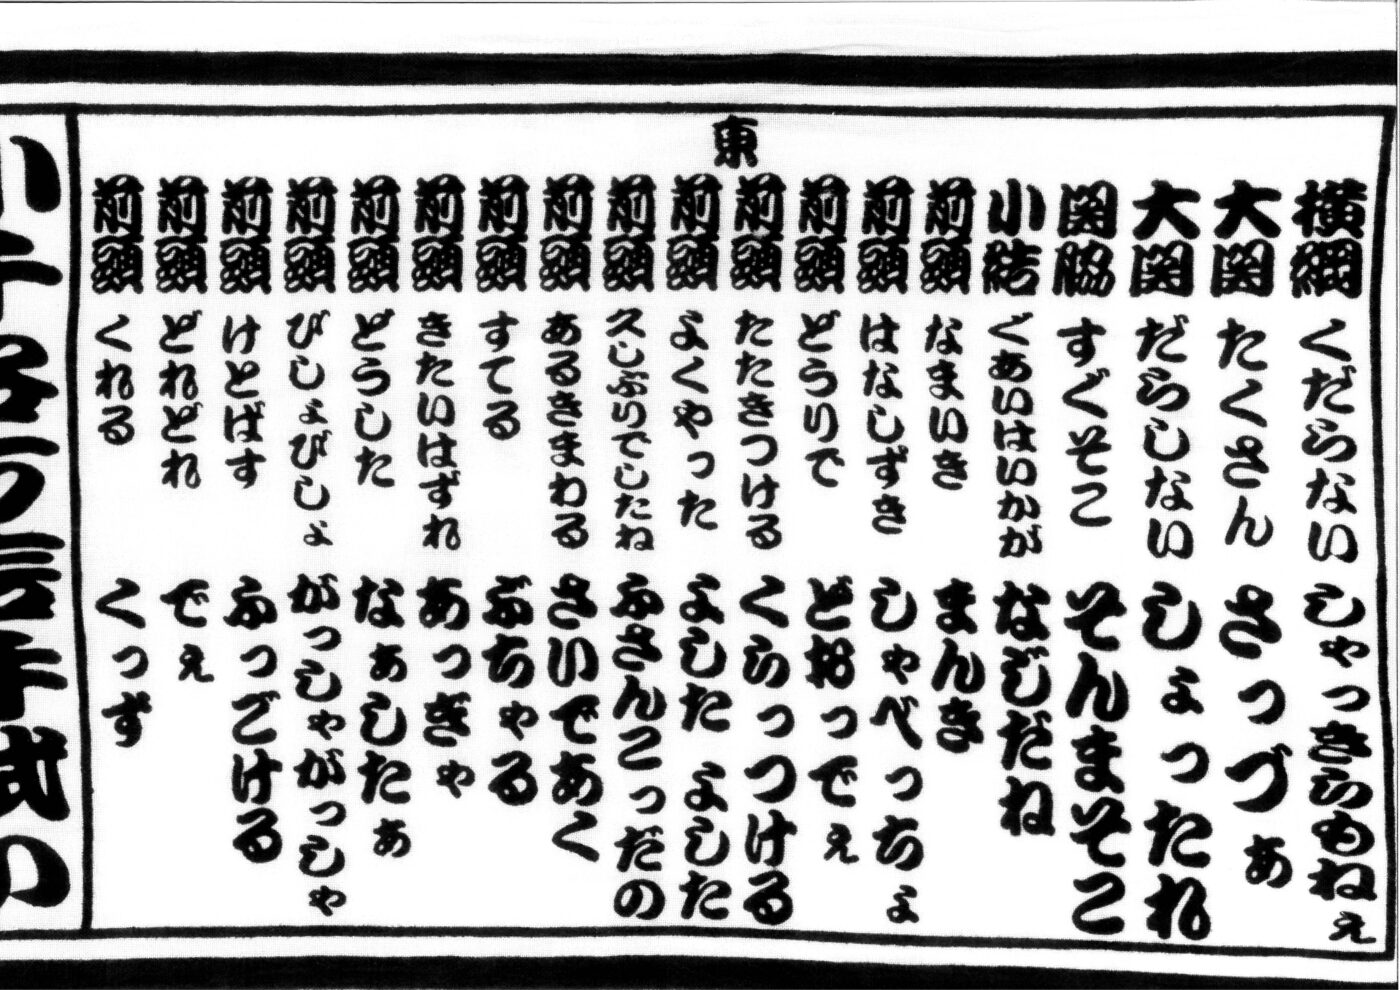 東
横綱 くだらない しゃっきらもねぇ
大関 たくさん さっづぁ
大関 だらしない しょったれ
関脇 すぐそこ そんまそこ
小結 ぐあいはいかが なじだね
前頭 なまいき まんき
前頭 はなしずき しゃべっちょ
前頭 どうりで どおっでぇ
前頭 たたきつける くらっつける
前頭 よくやった よしたよした
前頭 久しぶりでしたね ふさんこっだの
前頭 あるきまわる さいであく
前頭 すてる ぶちゃる
前頭 きたいはずれ あっぎゃ
前頭 どうした なぁしたぁ
前頭 びしょびしょ がっしゃがっしゃ
前頭 けとばす ふっごける
前頭 どれどれ でぇ
前頭 くれる くっず